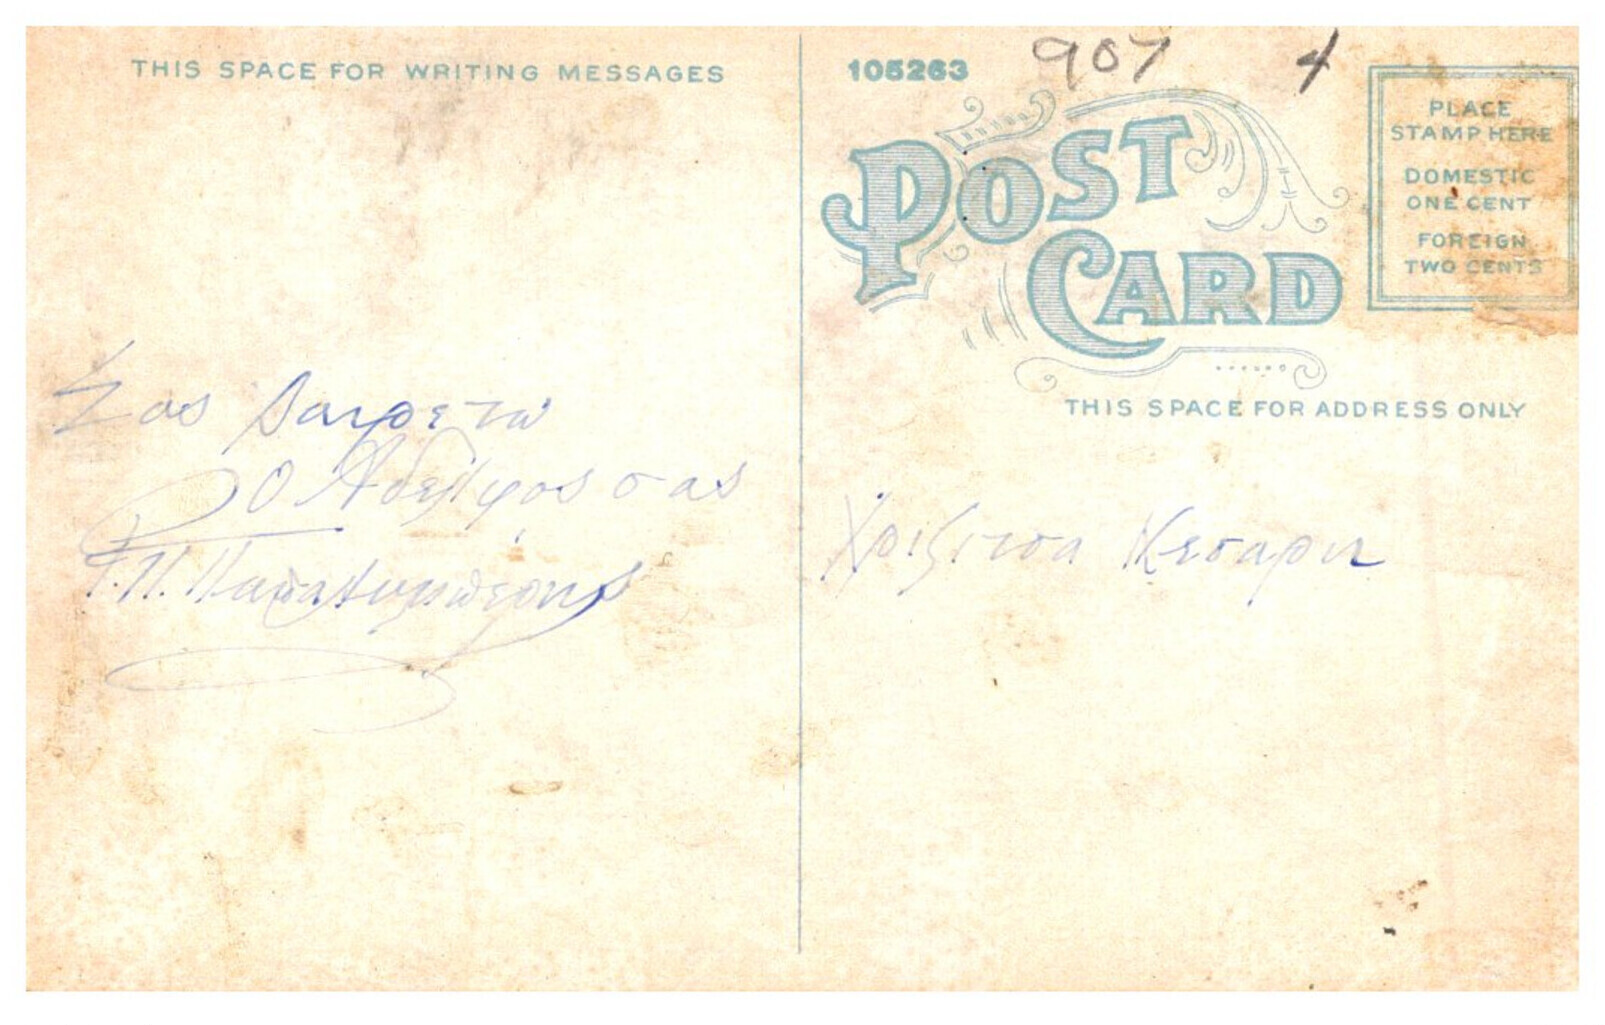 THIS SPACE FOR WRITING MESSAGES
Σας
Ο Αδελφος σας
105263
907 4
POST
CARD
PLACE
STAMP HERE
DOMESTIC
ONE CENT
FOREIGN
TWO CENTS
THIS SPACE FOR ADDRESS ONLY
Χριζιτσα Κεσαρη